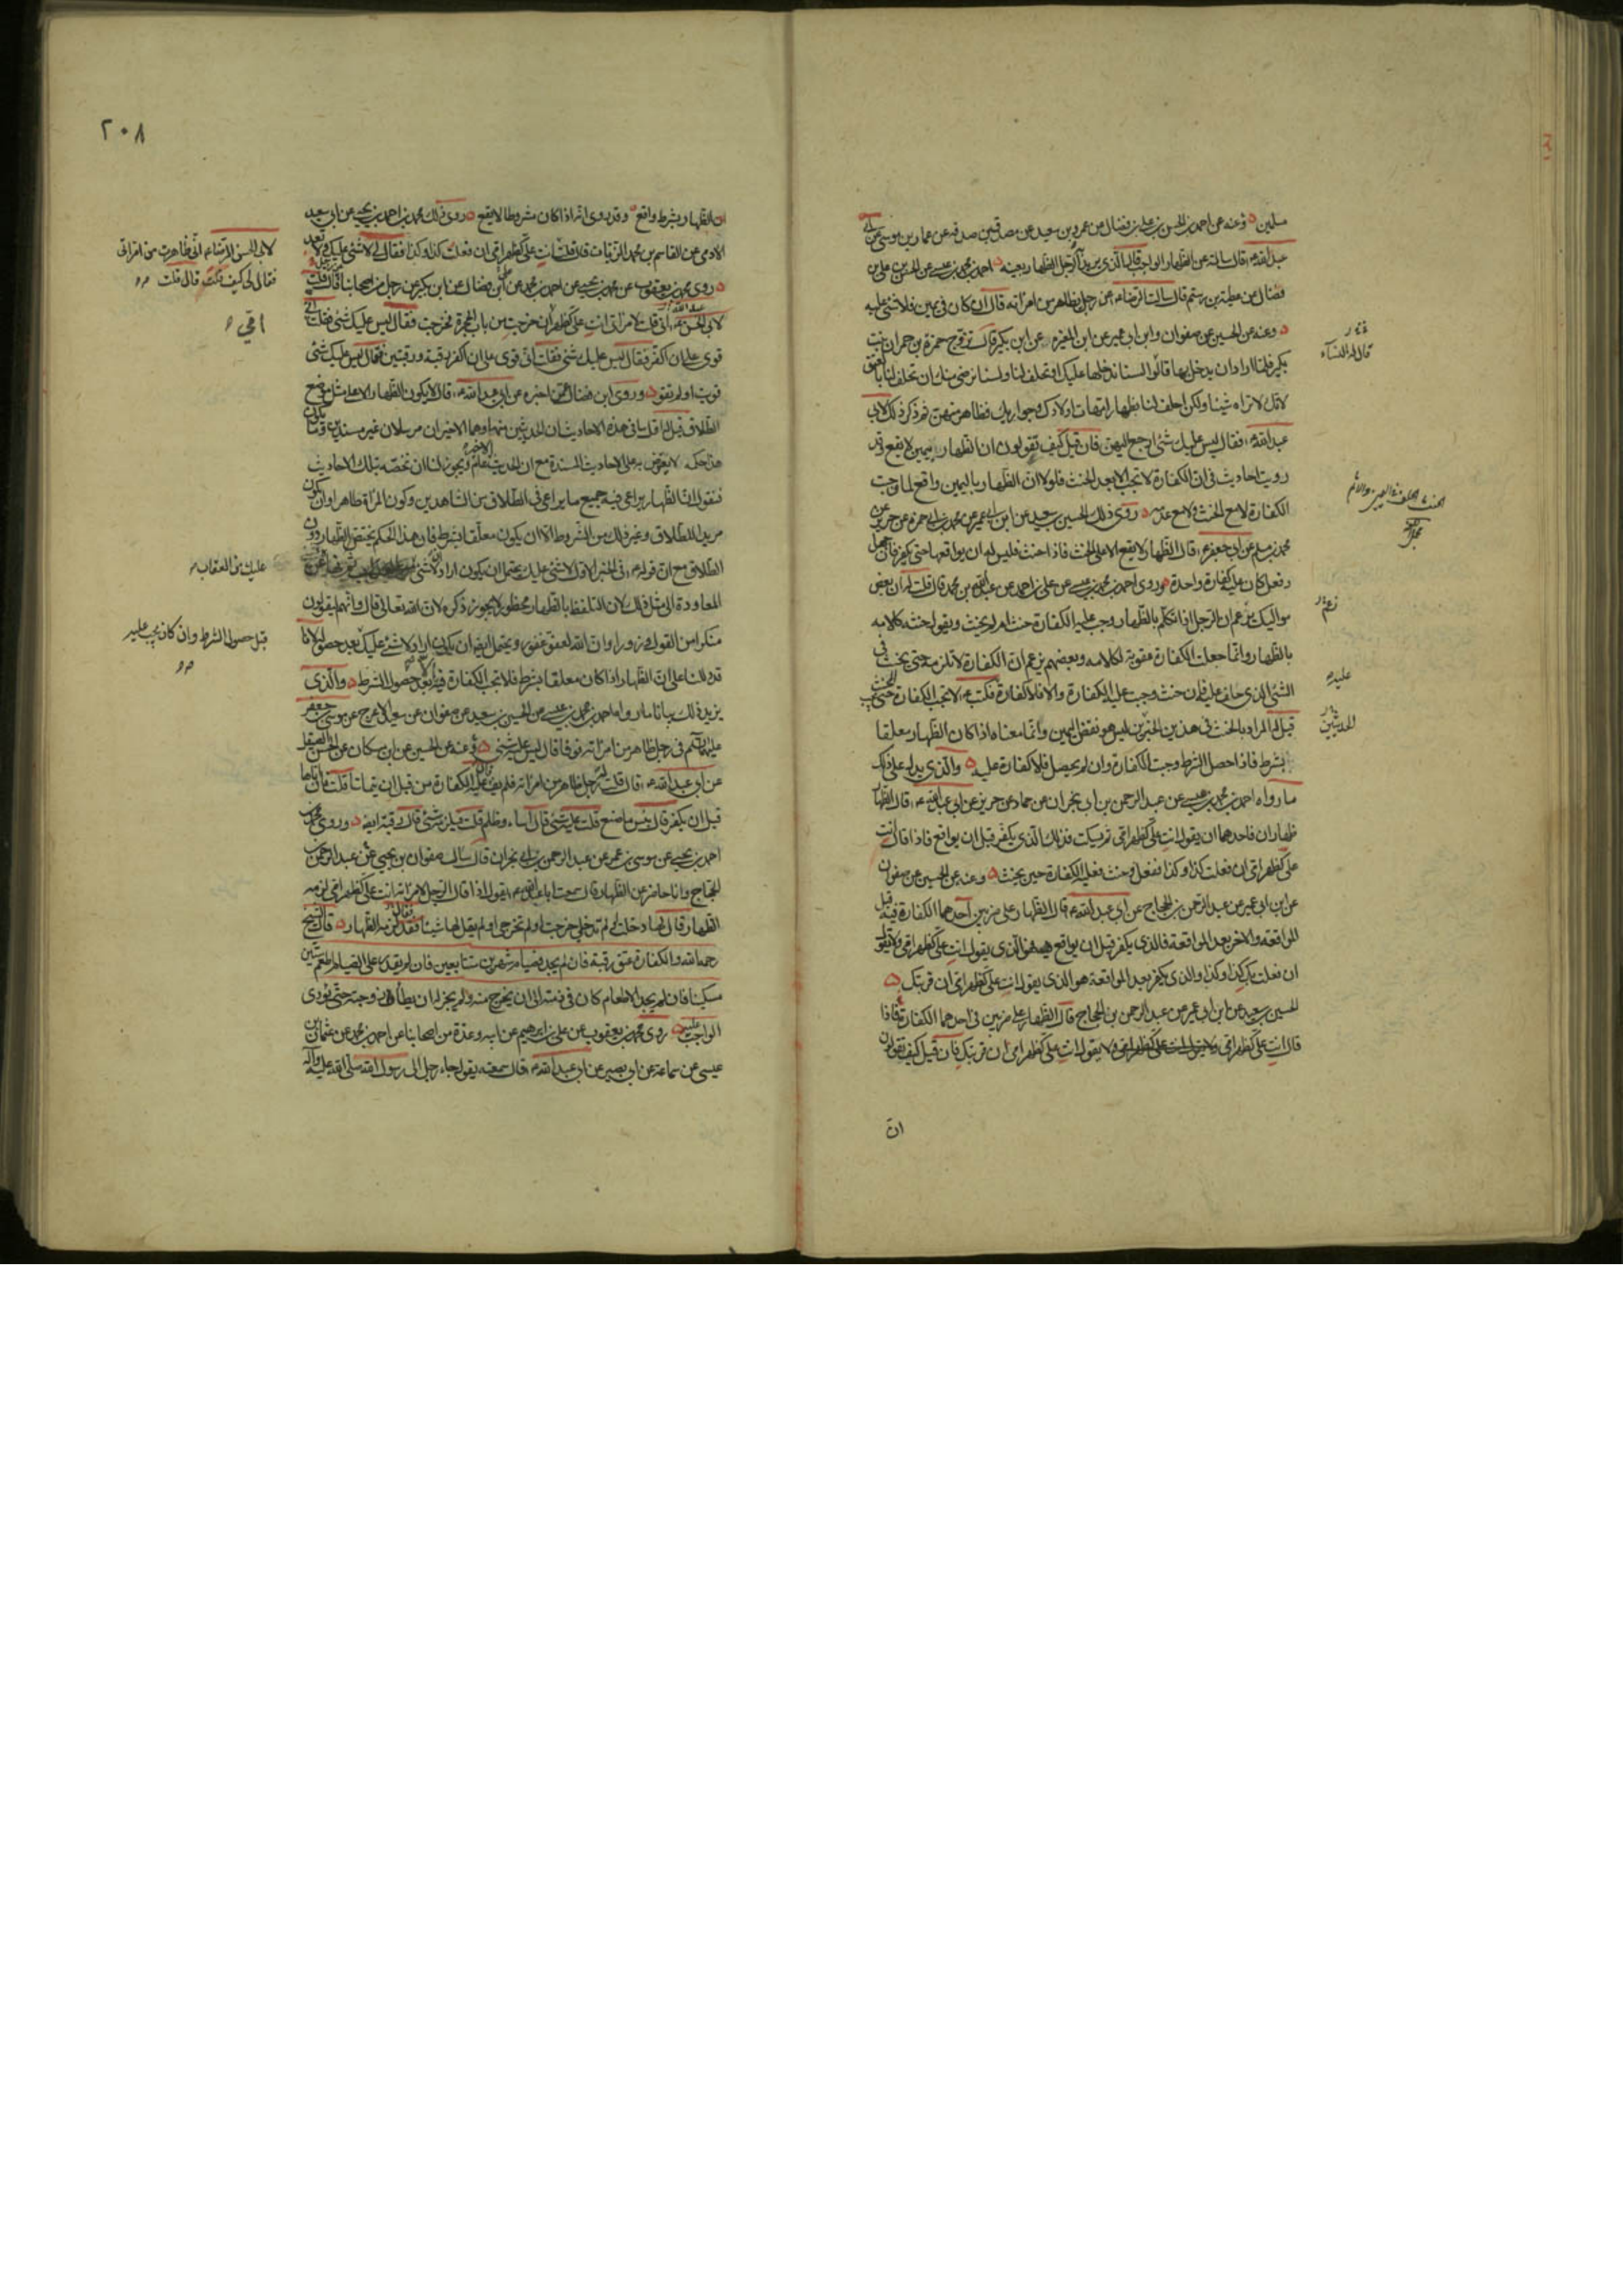 مسلمين وعنه عن احمد بن الحسن بن علي بن فضال عن عمرو بن سعيد عن مصدق بن صدقة عن عمار بن موسى عن ابي
عبد الله ع قال سالته عن الظهار الواجب قال الذي يريد به الرجل الظهار بعينه احمد بن محمد بن عيسى عن الحسن بن علي بن
فضال عن عطية بن رستم قال سالت الرضا ع عن رجل يظاهر من امراته قال ان كان في يمين فلا شئ عليه
وعنه عن الحسين عن صفوان وابن ابي عمير عن ابن المغيرة عن ابن بكير قال تزوج حمزة بن حمران بنت
بكير فلما اراد ان يدخل بها قالوا لسنا ندخلها عليك او تحلف لنا ولسنا نرضى منك ان تحلف لنا بالعتق
لانك لا تراه شيئا ولكن احلف لنا بظهار امهات اولادك وجواريك فظاهر منهن ثم ذكر ذلك لابي
عبد الله ع فقال ليس عليك شئ ارجع اليهن فان قيل كيف تقولون ان الظهار باليمين لا يقع وقد
رويت احاديث في ان الكفارة لا تجب الا بعد الحنث فلولا ان الظهار باليمين واقع لما وجبت
الكفارة لا مع الحنث ولا مع عدمه روى ذلك الحسين بن سعيد عن ابن ابي عمير عن محمد بن ابي حمزة عن حريز عن
محمد بن مسلم عن ابي جعفر ع قال الظهار لا يقع الا على الحنث فاذا حنث فليس له ان يواقعها حتى يكفر فان جهل
وفعل كان عليه كفارة واحدة وروى احمد بن محمد بن عيسى عن علي بن احمد عن عبد الله بن محمد قال قلت له ان بعض
مواليك يزعم ان الرجل اذا تكلم بالظهار وجب عليه الكفارة حنث او لم يحنث ويقول حنثه كلامه
بالظهار وانما جعلت الكفارة عقوبة لكلامه وبعضهم يزعم ان الكفارة لا تلزمه حتى يحنث في
الشئ الذي حلف عليه فان حنث وجب عليه الكفارة والا فلا كفارة فكتب ع لا تجب الكفارة حتى يجب الحنث
قيل له المراد بالحنث في هذين الخبرين ليس هو نقض اليمين وانما معناه اذا كان الظهار معلقا
بشرط فاذا حصل الشرط وجبت الكفارة وان لم يحصل فلا كفارة عليه والذي يدل على ذلك
ما رواه احمد بن محمد بن عيسى عن عبد الرحمن بن ابي نجران عن حماد عن حريز عن ابي عبد الله ع قال الظهار
ظهاران فاحدهما ان يقول انت علي كظهر امي ثم يسكت فذلك الذي يكفر قبل ان يواقع فاذا قال انت
علي كظهر امي ان فعلت كذا وكذا ففعل وحنث فعليه الكفارة حين يحنث وعنه عن الحسين عن صفوان
عن ابن ابي عمير عن عبد الرحمن بن الحجاج عن ابي عبد الله ع قال الظهار على ضربين احدهما الكفارة فيه قبل
المواقعة والاخر بعد المواقعة فالذي يكفر قبل ان يواقع فهو الذي يقول انت علي كظهر امي ولا يقول
ان فعلت بك كذا وكذا والذي يكفر بعد المواقعة هو الذي يقول انت علي كظهر امي ان قربتك
الحسين بن سعيد عن ابن ابي عمير عن عبد الرحمن بن الحجاج قال الظهار على ضربين في احدهما الكفارة اذا
قال انت علي كظهر امي ولا يقول انت علي كظهر امي ان قربتك فان قيل كيف تقولون
ان
قال له النساء
عليه
الحديثين
٢٠٨
ان الظهار بشرط واقع وقد روى انه اذا كان مشروطا لا يقع روى ذلك محمد بن احمد بن يحيى عن ابي سعيد
الادمي عن القاسم بن محمد الزيات قال قلت انت علي كظهر امي ان فعلت كذا وكذا فقال لي لا شئ عليك ولا تعد
روى محمد بن يعقوب عن محمد بن يحيى عن احمد بن محمد عن ابن فضال عن ابن بكير عن رجل من اصحابنا قال قلت
لابي الحسن ع اني قلت لامراتي انت علي كظهر امي ان خرجت من باب الحجرة فخرجت فقال ليس عليك شئ فقلت اني
قوي على ان اكفر فقال ليس عليك شئ فقلت اني قوي على ان اكفر رقبة ورقبتين فقال ليس عليك شئ
قويت او لم تقو وروى ابن فضال عمن اخبره عن ابي عبد الله ع قال لا يكون الظهار الا على مثل موضع
الطلاق قيل له اول ما في هذه الاحاديث ان الحديثين منهما وهما الاخيران مرسلان غير مسندين وما يكون
هذا حكمه لا يعترض به على الاحاديث المسندة مع ان الحديث الاخير عام ويجوز لنا ان نخصه بتلك الاحاديث
فنقول ان الظهار يراعى فيه جميع ما يراعى في الطلاق من الشاهدين وكون المراة طاهرا وان يكون
مريدا للطلاق وغير ذلك من الشروط الا ان يكون معلقا بشرط فان هذا الحكم يختص الظهار دون
الطلاق مع ان قوله ع في الخبر الاول لا شئ عليك يحتمل ان يكون اراد لا شئ
المعاودة الى مثل ذلك لان التلفظ بالظهار محظور لا يجوز ذكره لان الله تعالى قال وانهم ليقولون
منكرا من القول وزورا وان الله لعفو غفور ويحتمل ايضا ان يكون اراد ولا شئ عليك بعد حصوله لانا
قد دللنا على ان الظهار اذا كان معلقا بشرط فلا تجب الكفارة فيه الا بعد حصول الشرط والذي
يزيد ذلك بيانا ما رواه احمد بن محمد بن عيسى عن الحسين بن سعيد عن صفوان عن سعيد الاعرج عن موسى بن جعفر
عليهما السلم في رجل ظاهر من امراته فوفا قال ليس عليه شئ وعنه عن الحسين عن ابن مسكان عن الحسن الصيقل
عن ابي عبد الله ع قال قلت له رجل ظاهر من امراته فلم يف قال عليه الكفارة من قبل ان يتماسا قلت فان اتاها
قبل ان يكفر قال بئس ما صنع قلت عليه شئ قال اساء وظلم قلت فيلزمه شئ قال رقبة ايضا وروى محمد بن
احمد بن يحيى عن موسى بن عمر عن عبد الرحمن بن ابي نجران قال سال صفوان بن يحيى عن عبد الرحمن بن
الحجاج وانا حاضر عن الظهار قال سمعت ابا عبد الله ع يقول اذا قال الرجل لامراته انت علي كظهر امي لزمه
الظهار قال لها دخلت او لم تدخلي خرجت او لم تخرجي او لم يقل لها شيئا فقد لزمه الظهار قال الشيخ
رحمه الله والكفارة عتق رقبة فان لم يجد فصيام شهرين متتابعين فان لم يقدر على الصيام اطعم ستين
مسكينا فان لم يجد الاطعام كان في ذمته الى ان يخرج منه ولم يجز له ان يطأ زوجته حتى يؤدي
الواجب عليه روى محمد بن يعقوب عن علي بن ابراهيم عن ابيه وعدة من اصحابنا عن احمد بن محمد عن عثمان بن
عيسى عن سماعة عن ابي بصير عن ابي عبد الله ع قال سمعته يقول جاء رجل الى رسول الله صلى الله عليه واله
لابي الحسن الرضا ع اني ظاهرت من امراتي
فقال لي كيف قلت قال قلت
امي
عليك من العقاب
قبل حصول الشرط وان كان يجب عليه